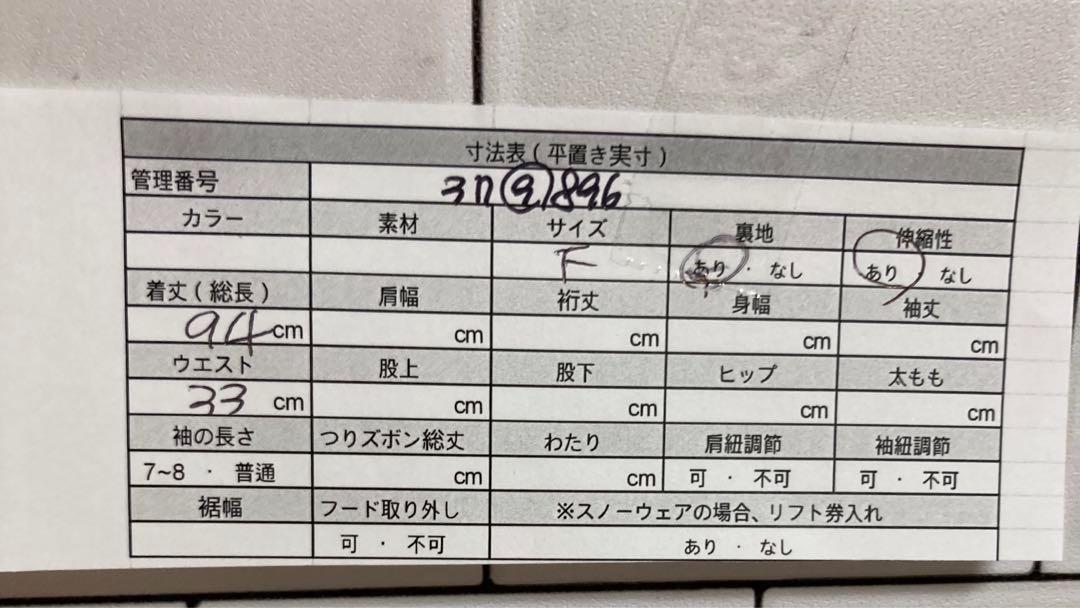 寸法表(平置き実寸)
管理番号 3n⑨896
カラー 素材 サイズ 裏地 伸縮性
F あり・なし あり・なし
着丈(総長) 肩幅 裄丈 身幅 袖丈
94cm cm cm cm cm
ウエスト 股上 股下 ヒップ 太もも
33 cm cm cm cm cm
袖の長さ つりズボン総丈 わたり 肩紐調節 袖紐調節
7~8 ・ 普通 cm cm 可 ・ 不可 可 ・ 不可
裾幅 フード取り外し ※スノーウェアの場合、リフト券入れ
可 ・ 不可 あり ・ なし